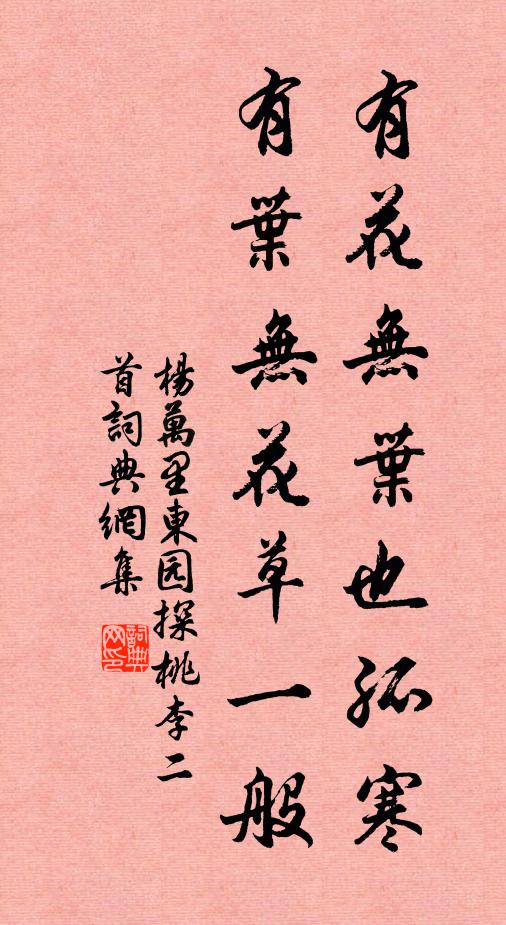 有花無葉也孤寒
有葉無花草一般
楊萬里東园探桃李二
首詞典網集
詞典网印